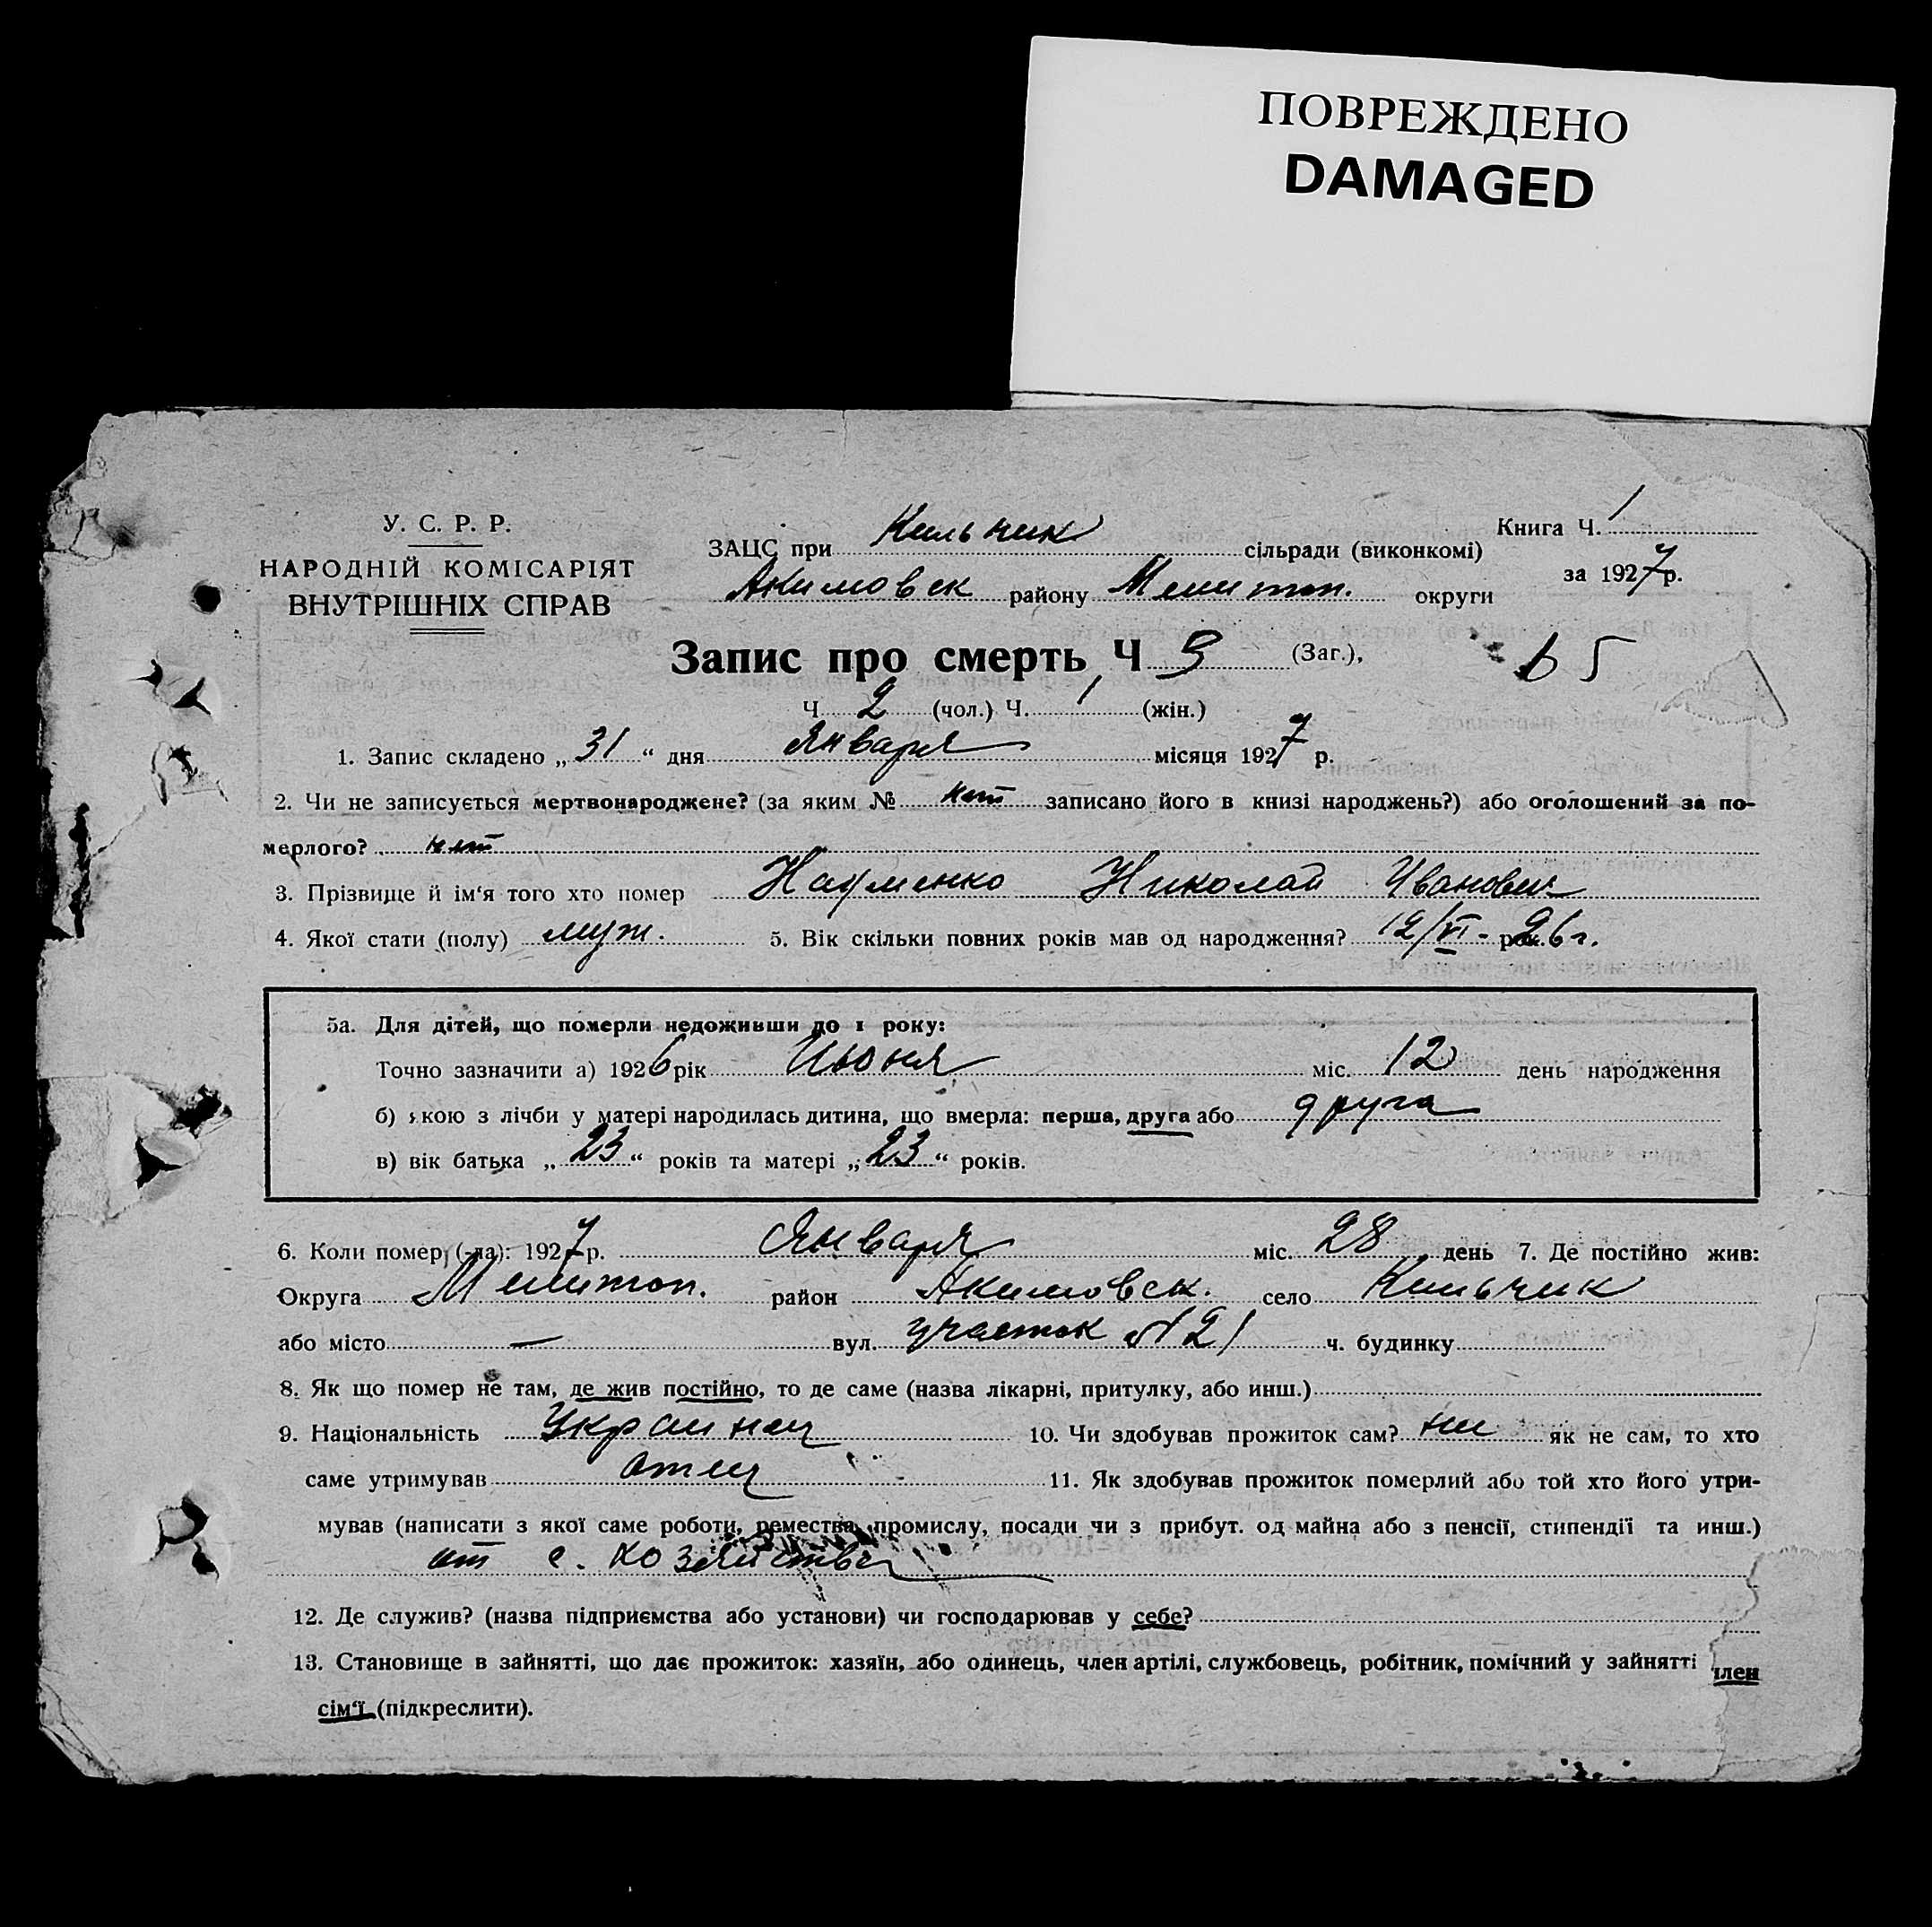 ПОВРЕЖДЕНО
DAMAGED
У. С. Р. Р.
НАРОДНІЙ КОМІСАРІЯТ
ВНУТРІШНІХ СПРАВ
Книга Ч. 1
за 1927 р.
ЗАЦС при Кильчик сільради (виконкомі)
Акимовск району Мелитоп. округи
Запис про смерть Ч 3 (Заг.),
Ч 2 (чол.) Ч. 1 (жін.)
1. Запис складено „ 31 “ дня Января місяця 1927 р.
2. Чи не записується мертвонароджене? (за яким № нет записано його в книзі народжень?) або оголошений за по-
мерлого? нет
3. Прізвище й ім‘я того хто помер Науменко Николай Иванович
4. Якої стати (полу) муж. 5. Вік скільки повних років мав од народження? 12/VI - 26 г.
5а. Для дітей, що померли недоживши до 1 року:
Точно зазначити а) 1926 рік Июня міс. 12 день народження
б) якою з лічби у матері народилась дитина, що вмерла: перша, друга або друга
в) вік батька „ 23 “ років та матері „ 23 “ років.
6. Коли помер (-ла): 1927 р. Января міс. 28 день 7. Де постійно жив:
Округа Мелитоп. район Акимовск. село Кильчик
або місто — вул. участок №21 ч. будинку
8. Як що помер не там, де жив постійно, то де саме (назва лікарні, притулку, або инш.)
9. Національність Украинец 10. Чи здобував прожиток сам? ни як не сам, то хто
саме утримував отец 11. Як здобував прожиток померлий або той хто його утри-
мував (написати з якої саме роботи, ремества, промислу, посади чи з прибут. од майна або з пенсії, стипендії та инш.)
от с. хозяйства
12. Де служив? (назва підприємства або установи) чи господарював у себе?
13. Становище в зайнятті, що дає прожиток: хазяїн, або одинець, член артілі, службовець, робітник, помічний у зайнятті член
сім‘ї (підкреслити).